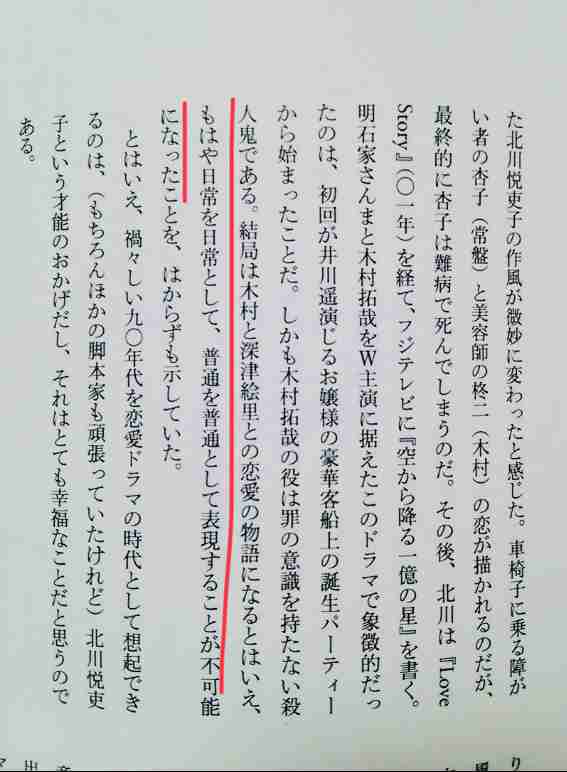 た北川悦吏子の作風が微妙に変わったと感じた。車椅子に乗る障が
い者の杏子（常盤）と美容師の柊二（木村）の恋が描かれるのだが、
最終的に杏子は難病で死んでしまうのだ。その後、北川は『Love
Story』（〇一年）を経て、フジテレビに『空から降る一億の星』を書く。
明石家さんまと木村拓哉をW主演に据えたこのドラマで象徴的だっ
たのは、初回が井川遥演じるお嬢様の豪華客船上の誕生パーティー
から始まったことだ。しかも木村拓哉の役は罪の意識を持たない殺
人鬼である。結局は木村と深津絵里との恋愛の物語になるとはいえ、
もはや日常を日常として、普通を普通として表現することが不可能
になったことを、はからずも示していた。
とはいえ、禍々しい九〇年代を恋愛ドラマの時代として想起でき
るのは、（もちろんほかの脚本家も頑張っていたけれど）北川悦吏
子という才能のおかげだし、それはとても幸福なことだと思うので
ある。